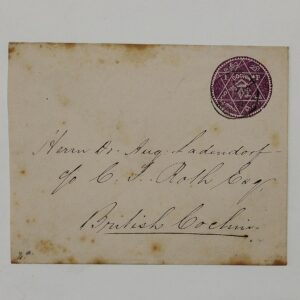 Herrn Dr. Aug. Ladendorf
c/o C. F. Roth Esq
British Cochin.